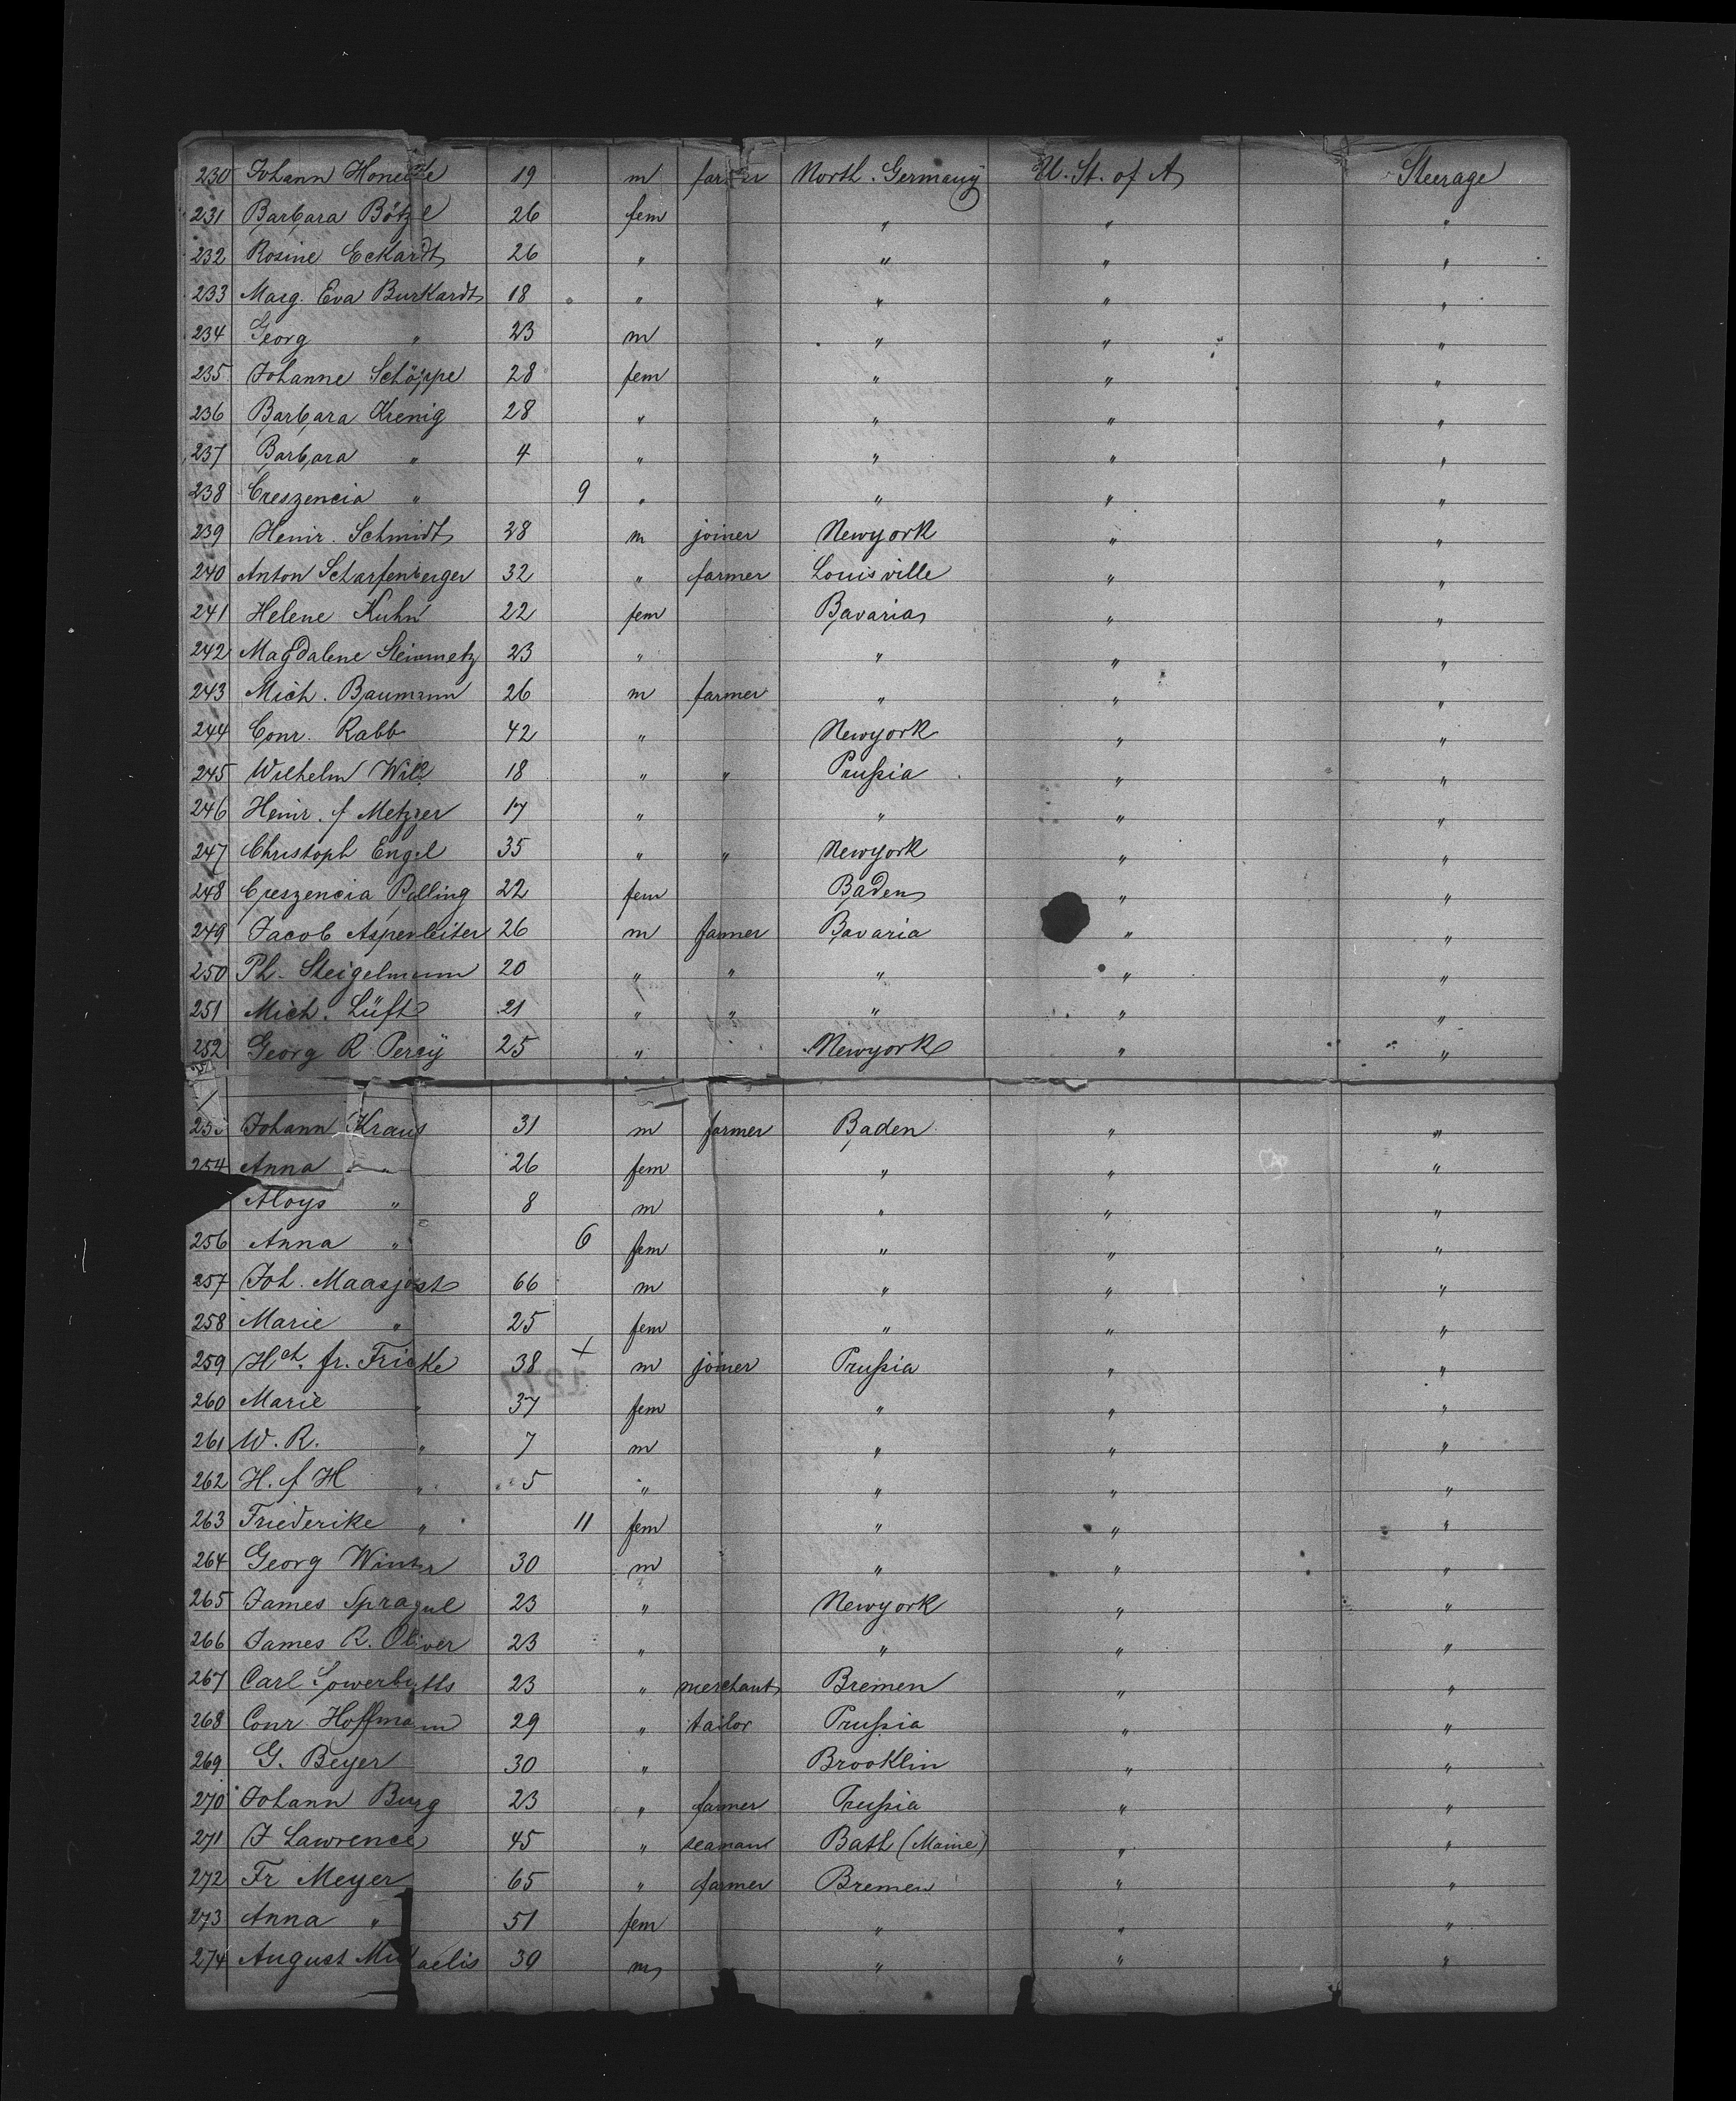 230 Johann Hone 19 m farmer North. Germany U. St. of A. Steerage
231 Barbara Bötzel 26 fem " " "
232 Rosine Eckardt 26 " " " "
233 Marg. Eva Burkardt 18 " " " "
234 Georg " 23 m " " "
235 Johanne Schöppe 28 fem " " "
236 Barbara Krenig 28 " " " "
237 Barbara " 4 " " " "
238 Creszencia " 9 " " " "
239 Heinr. Schmidt 28 m joiner Newyork " "
240 Anton Scharfenberger 32 " farmer Louisville " "
241 Helene Kuhn 22 fem Bavaria " "
242 Magdalene Steinmetz 23 " " " "
243 Mich. Baumann 26 m farmer " " "
244 Conr. Rabb 42 " Newyork " "
245 Wilhelm Will 18 " " Prußia " "
246 Heinr. f Metzger 17 " " " "
247 Christoph Engel 35 " " Newyork " "
248 Creszencia Polling 22 fem Baden " "
249 Jacob Aspenleiter 26 m farmer Bavaria " "
250 Ph. Steigelmann 20 " " " " "
251 Mich. Lüft 21 " " " " "
252 Georg R. Percy 25 " Newyork " "
253 Johann Kraus 31 m farmer Baden " "
254 Anna " 26 fem " " "
Aloys " 8 m " " "
256 Anna " 6 fem " " "
257 Joh. Maasjost 66 m " " "
258 Marie " 25 fem " " "
259 Hch. fr. Fricke 38 + m joiner Prußia " "
260 Marie " 37 fem " " "
261 W. R. " 7 m " " "
262 H. f H " 5 " " " "
263 Friederike " 11 fem " " "
264 Georg Winter 30 m " " "
265 James Spragul 23 " Newyork " "
266 James R. Oliver 23 " " " "
267 Carl 23 " merchant Bremen " "
268 Conr. Hoffmann 29 " tailor Prußia " "
269 G. Beyer 30 " Brooklin " "
270 Johann Burg 23 " farmer Prußia " "
271 J Lawrence 45 " seaman Bath (Maine) " "
272 Fr Meyer 65 " farmer Bremen " "
273 Anna " 51 fem " " "
274 August Michaelis 39 m " " "